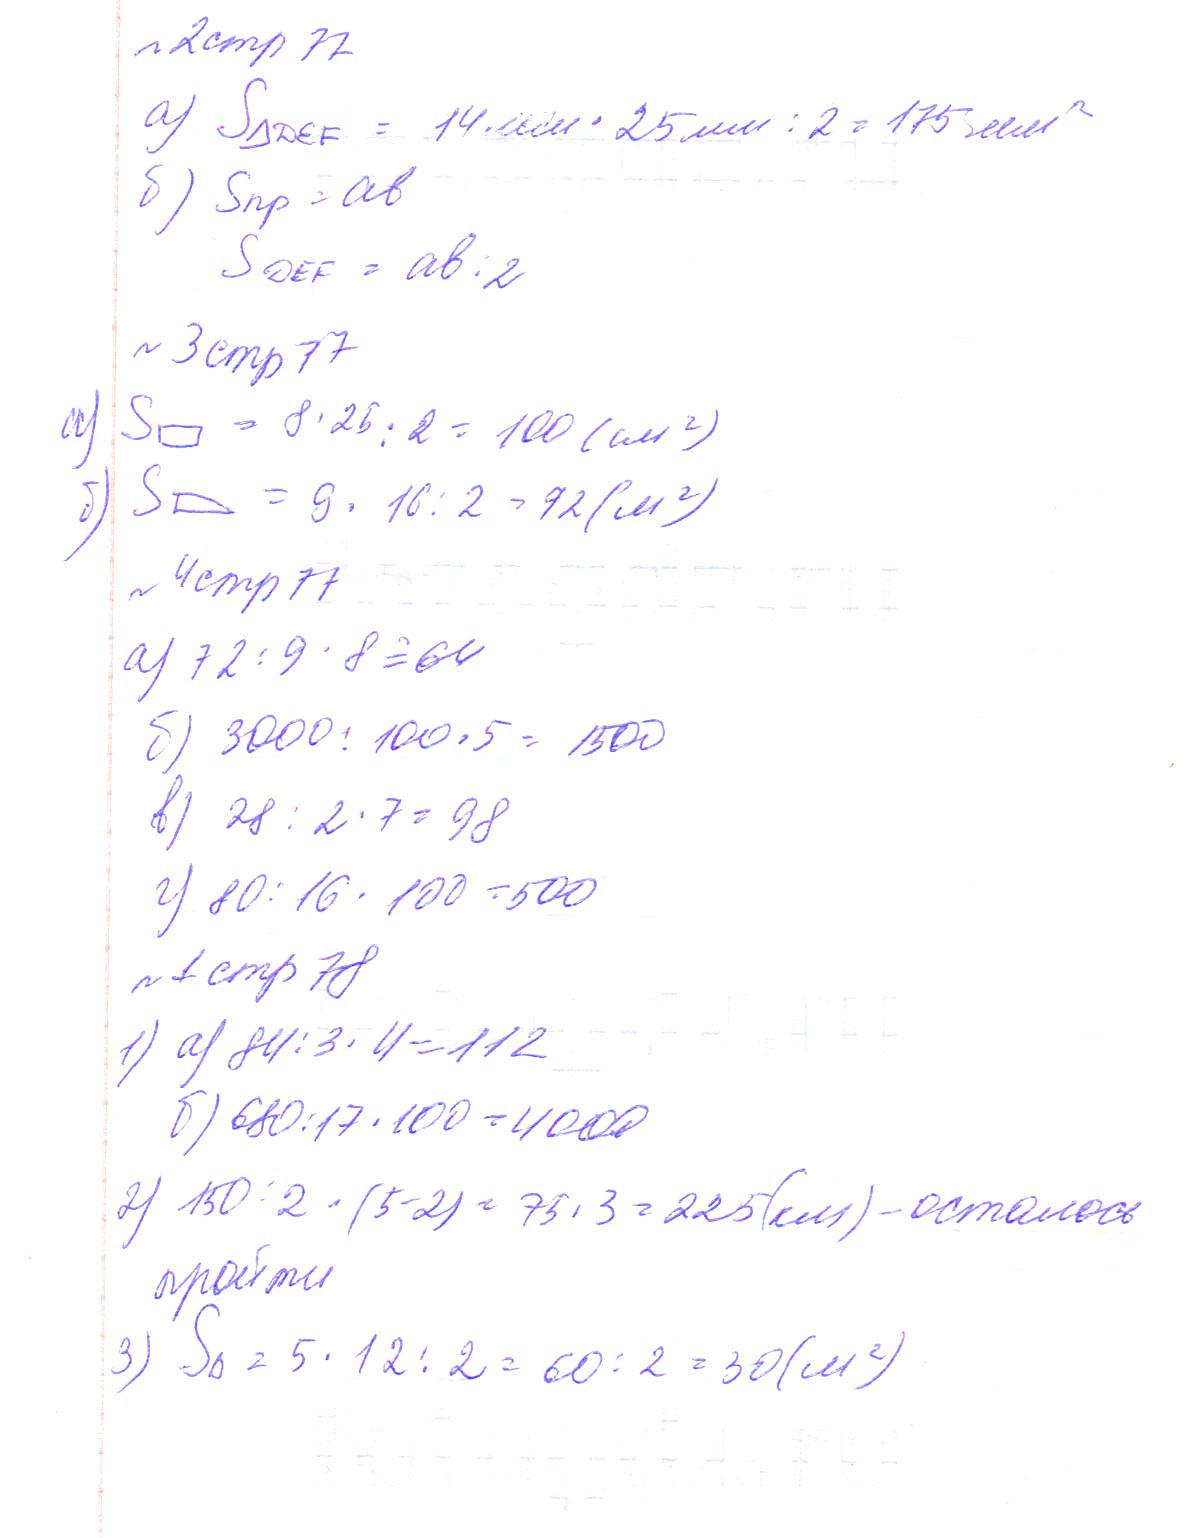 ~ 2 стр 77
а) S△DEF = 14 мм · 25 мм : 2 = 175 мм²
б) Sпр = ав
SDEF = ав : 2
~ 3 стр 77
а) S▭ = 8 · 25 : 2 = 100 (см²)
б) S = 9 · 16 : 2 = 92 (м²)
~ 4 стр 77
а) 72 : 9 · 8 = 64
б) 3000 : 100 · 5 = 1500
в) 28 : 2 · 7 = 98
г) 80 : 16 · 100 = 500
~ 1 стр 78
1) а) 84 : 3 · 4 = 112
б) 680 : 17 · 100 = 4000
2) 150 : 2 · (5-2) = 75 · 3 = 225 (км) – осталось
пройти
3) S△ = 5 · 12 : 2 = 60 : 2 = 30 (м²)